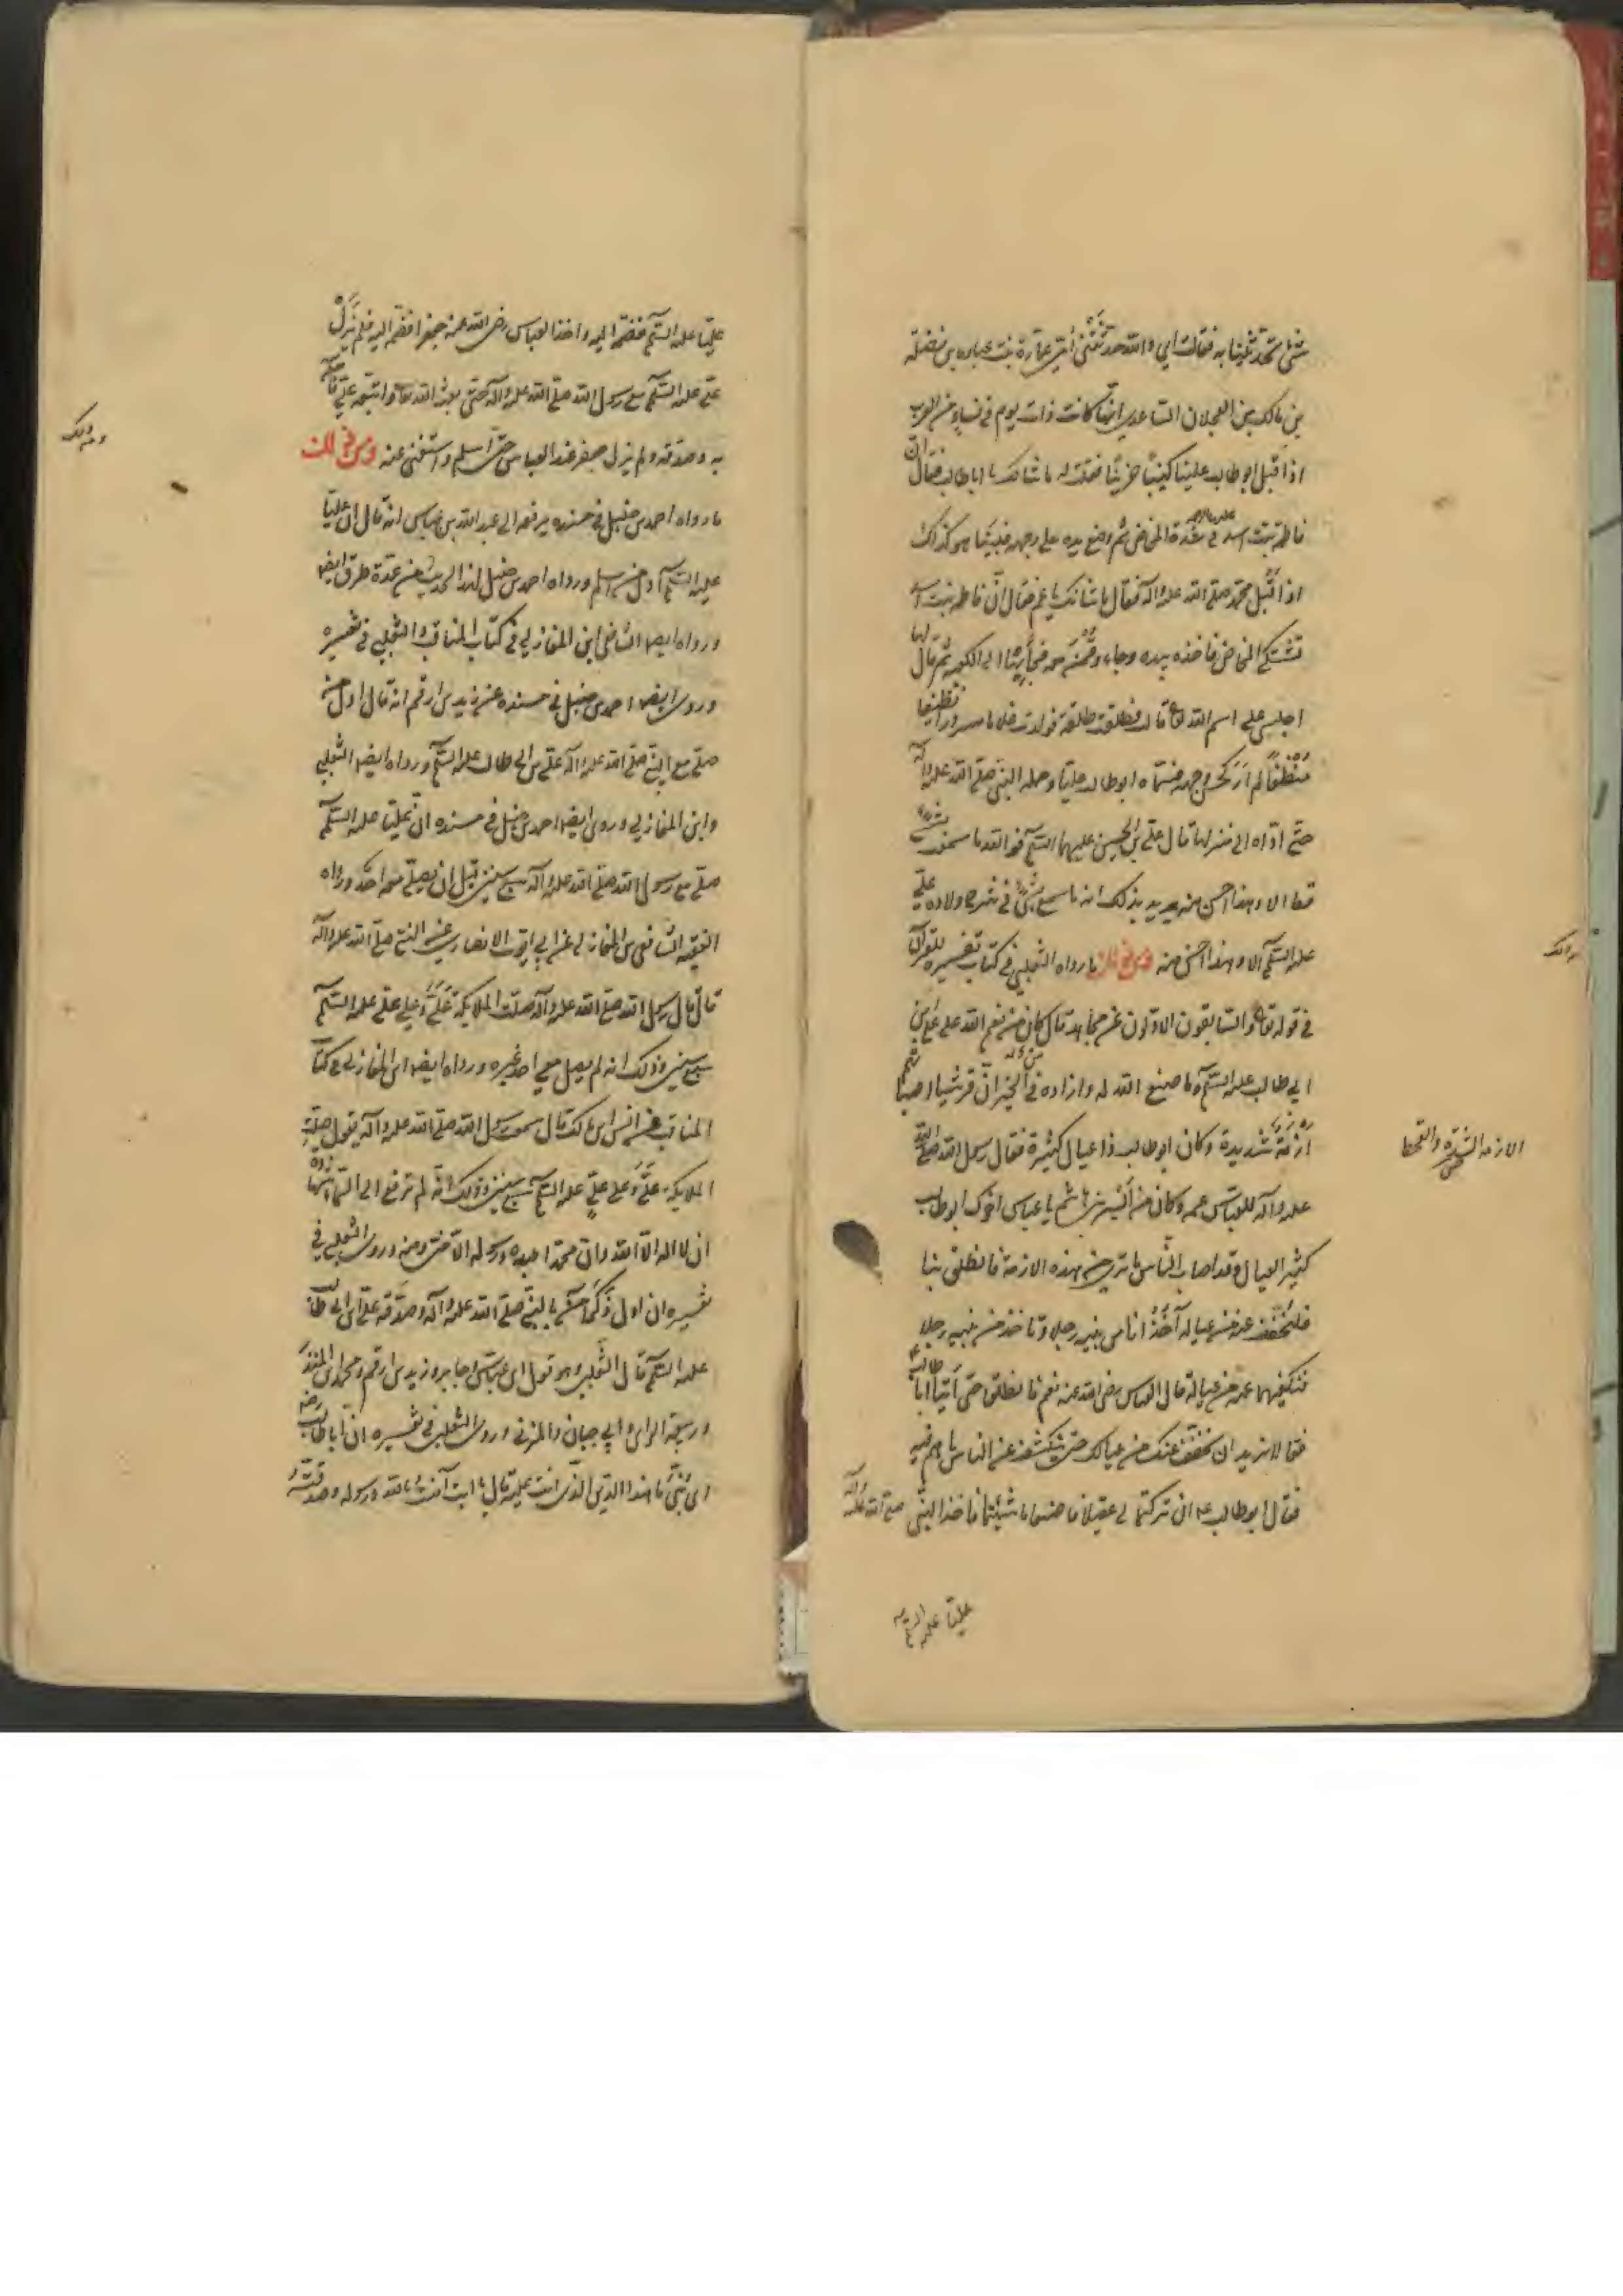 شئ تحدثينا به فقالت اي والله حدثتني امي عمارة بنت عباده بن نضله
بن مالك بن العجلان الساعدي انها كانت ذات يوم في نساء من العرب
اذ اقبل ابو طالب علينا كئيبا حزينا فقلت له ما شانك يا ابا طالب فقال ان
فاطمة بنت اسد في شدة المخاض ثم وضع يده على وجهه فبينما هو كذلك
اذ اقبل محمد صلى الله عليه وآله فقال ما شانك يا عم فقال ان فاطمة بنت اسد
تشتكي المخاض فاخذه بيده وجاء وقمن معه فجاء بها الى الكعبة ثم قال لها
اجلسي على اسم الله تعالى قالت فطلقت طلقة فولدت غلاما مسرورا نظيفا
منظفا لم ار كحسن وجهه فسماه ابو طالب عليا وحمله النبي صلى الله عليه وآله
حتى اداه الى منزلها قال علي بن الحسين عليهما السلام فوالله ما سمعت بشئ
قط الا وهذا احسن منه يريد بذلك انه ما سمع بشئ في شرح ولادة علي
عليه السلام الا وهذا احسن منه ومن ذلك ما رواه الثعلبي في كتاب تفسيره للقرآن
في قوله تعالى والسابقون الاولون عن مجاهد قال كان من نعم الله على علي بن
ابي طالب عليه السلام وما صنع الله له وازاده من الخير ان قريشا اصابتهم
ازمة شديدة وكان ابو طالب ذا عيال كثيرة فقال رسول الله صلى الله
عليه وآله للعباس عمه وكان من ايسر بني هاشم يا عباس اخوك ابو طالب
كثير العيال وقد اصاب الناس ما ترى من هذه الازمة فانطلق بنا
فلنخفف عنه من عياله آخذ انا من بنيه رجلا وتاخذ من بنيه رجلا
فنكفيهما عنه من عياله قال العباس رضي الله عنه نعم فانطلق حتى اتيا ابا طالب
فقالا نريد ان نخفف عنك من عيالك حتى ينكشف عن الناس ما هم فيه
فقال ابو طالب ان تركتما لي عقيلا فاصنعا ما شئتما فاخذ النبي صلى الله عليه وآله
عليا عليه السلام
ومن ذلك
الازمة الشدة والقحط
عليا عليه السلام فضمه اليه واخذ العباس رضي الله عنه جعفرا فضمه اليه فلم يزل
علي عليه السلام مع رسول الله صلى الله عليه وآله حتى بعثه الله تعالى واتبعه علي فآمن
به وصدقه ولم يزل جعفر عند العباس حتى اسلم واستغنى عنه ومن ذلك
ما رواه احمد بن حنبل في مسنده يرفعه الى عبد الله بن عباس انه قال ان عليا
عليه السلام اول من اسلم ورواه احمد بن حنبل لهذا الحديث من عدة طرق ايضا
ورواه ايضا الشافعي ابن المغازلي في كتاب المناقب والثعلبي في تفسيره
وروى ايضا احمد بن حنبل في مسنده عن زيد بن ارقم انه قال اول من
صلى مع النبي صلى الله عليه وآله علي بن ابي طالب عليه السلام ورواه ايضا الثعلبي
وابن المغازلي وروى ايضا احمد بن حنبل في مسنده ان عليا عليه السلام
صلى مع رسول الله صلى الله عليه وآله سبع سنين قبل ان يصلي معه احد ورواه
الفقيه الشافعي بن المغازلي عن ابي ايوب الانصاري عن النبي صلى الله عليه وآله
قال قال رسول الله صلى الله عليه وآله صلت الملايكة علي وعلى علي عليه السلام
سبع سنين وذلك انه لم يصل معي احد غيره ورواه ايضا ابن المغازلي في كتاب
المناقب عن انس ابن مالك قال سمعت رسول الله صلى الله عليه وآله يقول صلت
الملايكة علي وعلى علي عليه السلام سبع سنين وذلك انه لم ترفع الى السماء شهادة
ان لا اله الا الله وان محمدا عبده ورسوله الا مني ومنه وروى الثعلبي في
تفسيره ان اول ذكر آمن بالنبي صلى الله عليه وآله وصدقه علي بن ابي طالب
عليه السلام قال الثعلبي وهو قول ابن عباس وجابر وزيد بن ارقم ومحمد بن المنكدر
وربيعة الراي وابي حبان والمزني وروى الثعلبي في تفسيره ان ابا طالب
اي بني ما هذا الدين الذي انت عليه قال يا ابت آمنت بالله ورسوله وصدقته
ومن ذلك